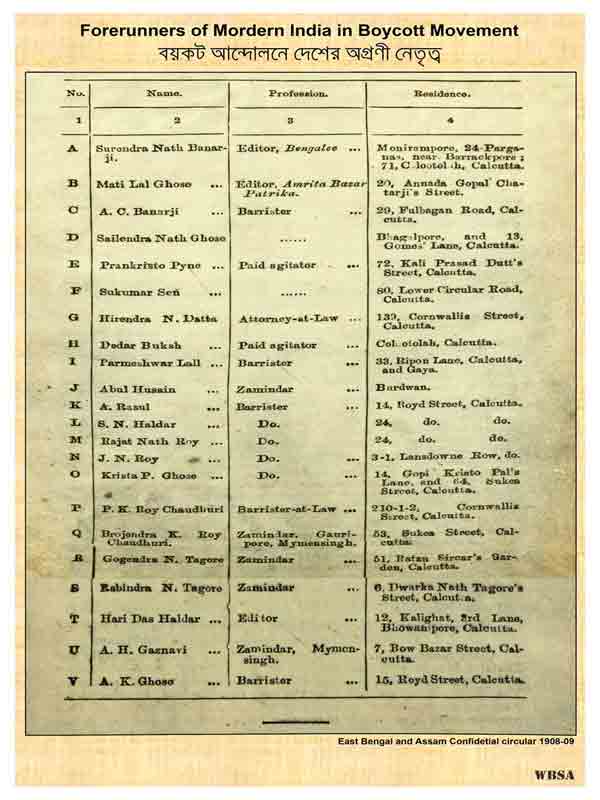 Forerunners of Mordern India in Boycott Movement
বয়কট আন্দোলনে দেশের অগ্রণী নেতৃত্ব
No. Name. Profession. Residence.
1 2 3 4
A Surendra Nath Banar- Editor, Bengalee ... Monirampore, 24-Parga-
ji. nas, near Barrackpore;
71, Colootolah, Calcutta.
B Mati Lal Ghose ... Editor, Amrita Bazar 20, Annada Gopal Cha-
Patrika. tarji's Street.
C A. C. Banarji ... Barrister ... 29, Fulbagan Road, Cal-
cutta.
D Sailendra Nath Ghose ...... Bhagalpore, and 13,
Gomes' Lane, Calcutta.
E Prankristo Pyne ... Paid agitator ... 72, Kali Prasad Dutt's
Street, Calcutta.
F Sukumar Sen ... ...... 80, Lower Circular Road,
Calcutta.
G Hirendra N. Datta Attorney-at-Law ... 139, Cornwallis Street,
Calcutta.
H Dedar Buksh ... Paid agitator ... Colootolah, Calcutta.
I Parmeshwar Lall ... Barrister ... 33, Ripon Lane, Calcutta,
and Gaya.
J Abul Husain ... Zamindar ... Burdwan.
K A. Rasul ... Barrister ... 14, Royd Street, Calcutta.
L S. N. Haldar ... Do. ... 24, do. do.
M Rajat Nath Roy ... Do. ... 24, do. do.
N J. N. Roy ... Do. ... 3-1, Lansdowne Row, do.
O Krista P. Ghose ... Do. ... 14, Gopi Kristo Pal's
Lane, and 64, Sukea
Street, Calcutta.
P P. K. Roy Chaudhuri Barrister-at-Law ... 210-1-2, Cornwallis
Street, Calcutta.
Q Brojendra K. Roy Zamindar, Gauri- 53, Sukea Street, Cal-
Chaudhuri. pore, Mymensingh. cutta.
R Gogendra N. Tagore Zamindar ... 51, Ratan Sircar's Gar-
den, Calcutta.
S Rabindra N. Tagore Zamindar ... 6, Dwarka Nath Tagore's
Street, Calcutta.
T Hari Das Haldar ... Editor ... 12, Kalighat, 3rd Lane,
Bhowanipore, Calcutta.
U A. H. Gaznavi ... Zamindar, Mymen- 7, Bow Bazar Street, Cal-
singh. cutta.
V A. K. Ghose ... Barrister ... 15, Royd Street, Calcutta.
East Bengal and Assam Confidetial circular 1908-09
WBSA